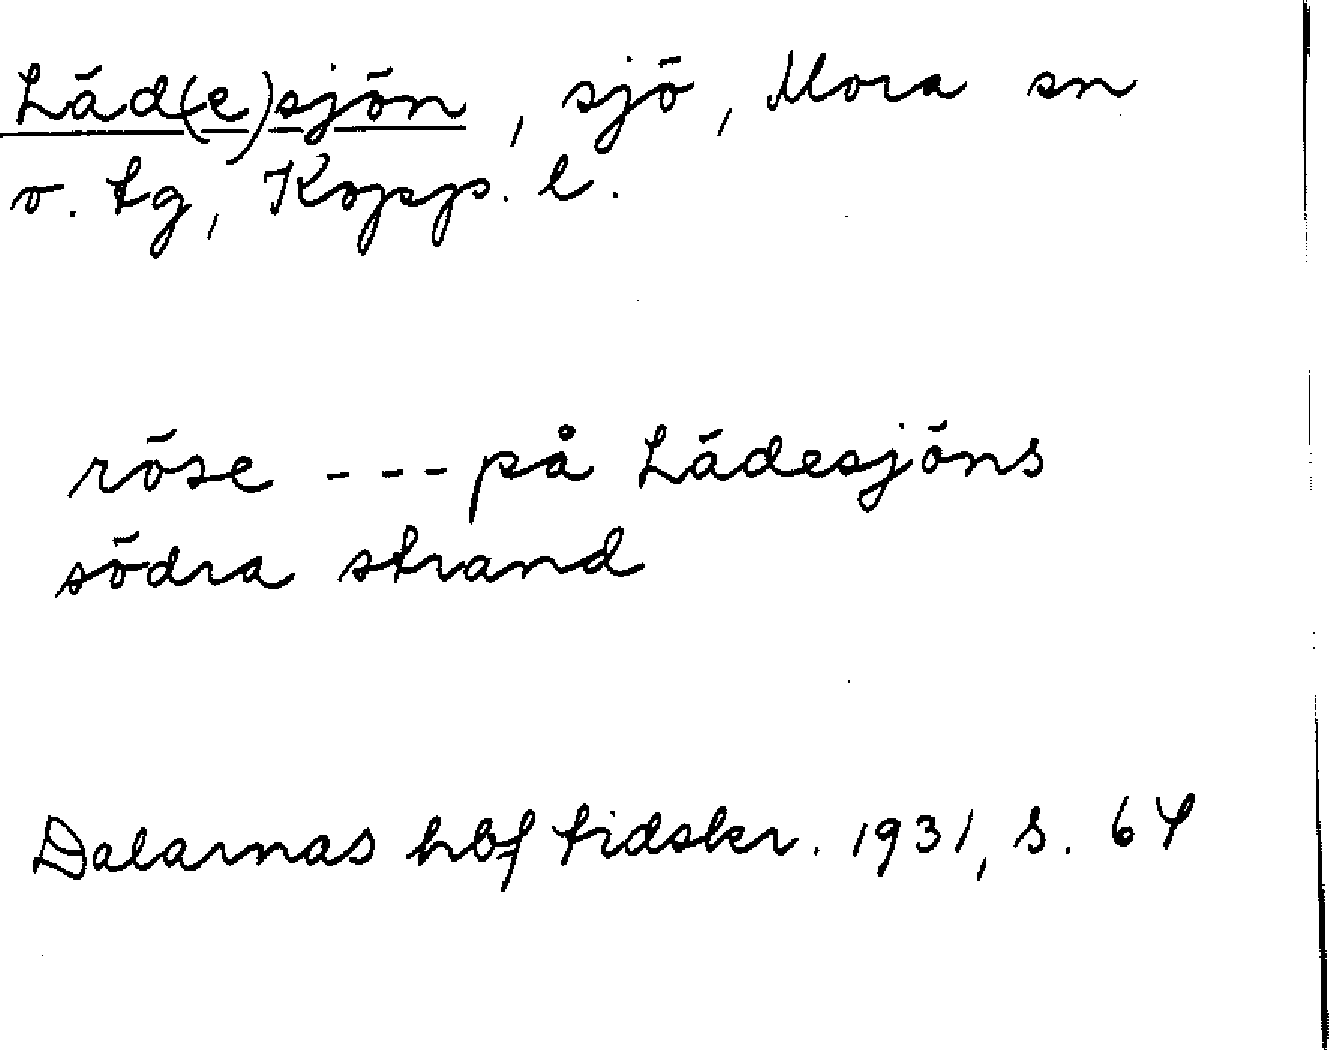 Läd(e)sjön, sjö, Mora sn
o. tg, Kopp. l.
röse --- på Lädesjöns
södra strand
Dalarnas hbf tidskr. 1931, s. 64